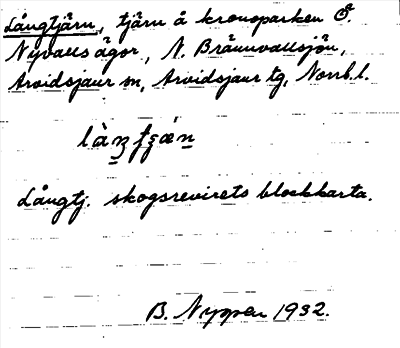 Långtjärn, tjärn å kronoparken Ö.
Nyvalls ägor, N. Brännvallsjön,
Arvidsjaur sn, Arvidsjaur tg, Norrb. l.
Långtj. skogsrevirets blockkarta.
B. Nyppen 1932.